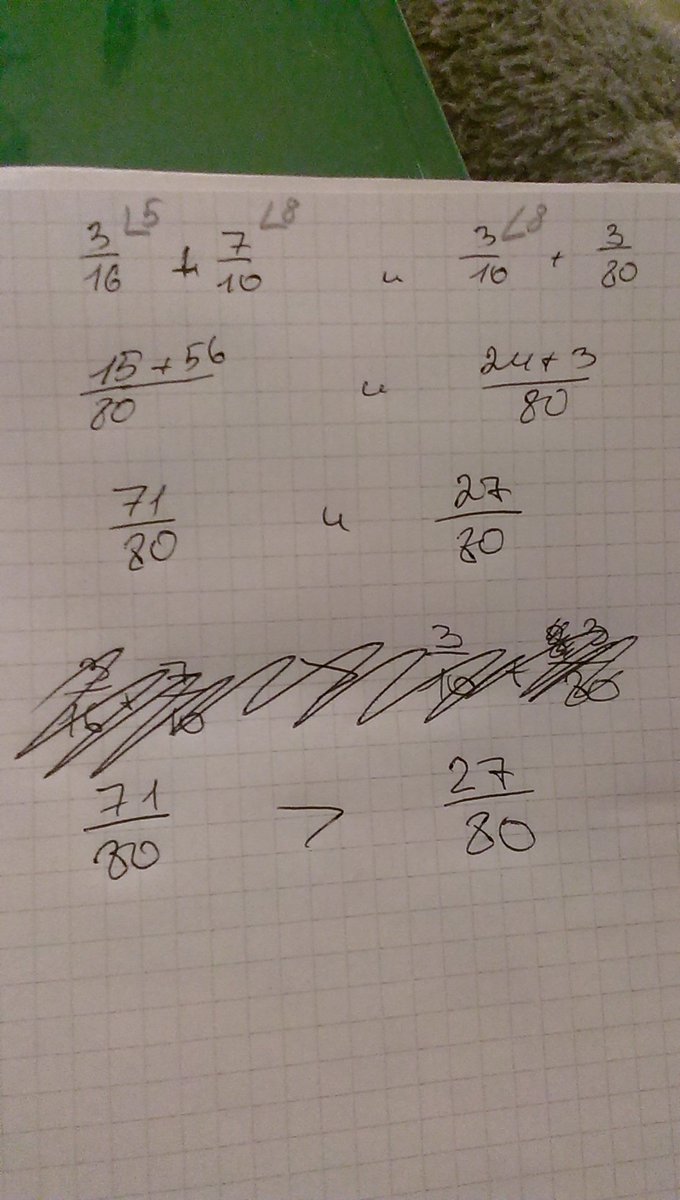 3/16 ∟5 + 7/10 ∟8 и 3/10 ∟8 + 3/80
15+56/80 и 24+3/80
71/80 и 27/80
71/80 > 27/80